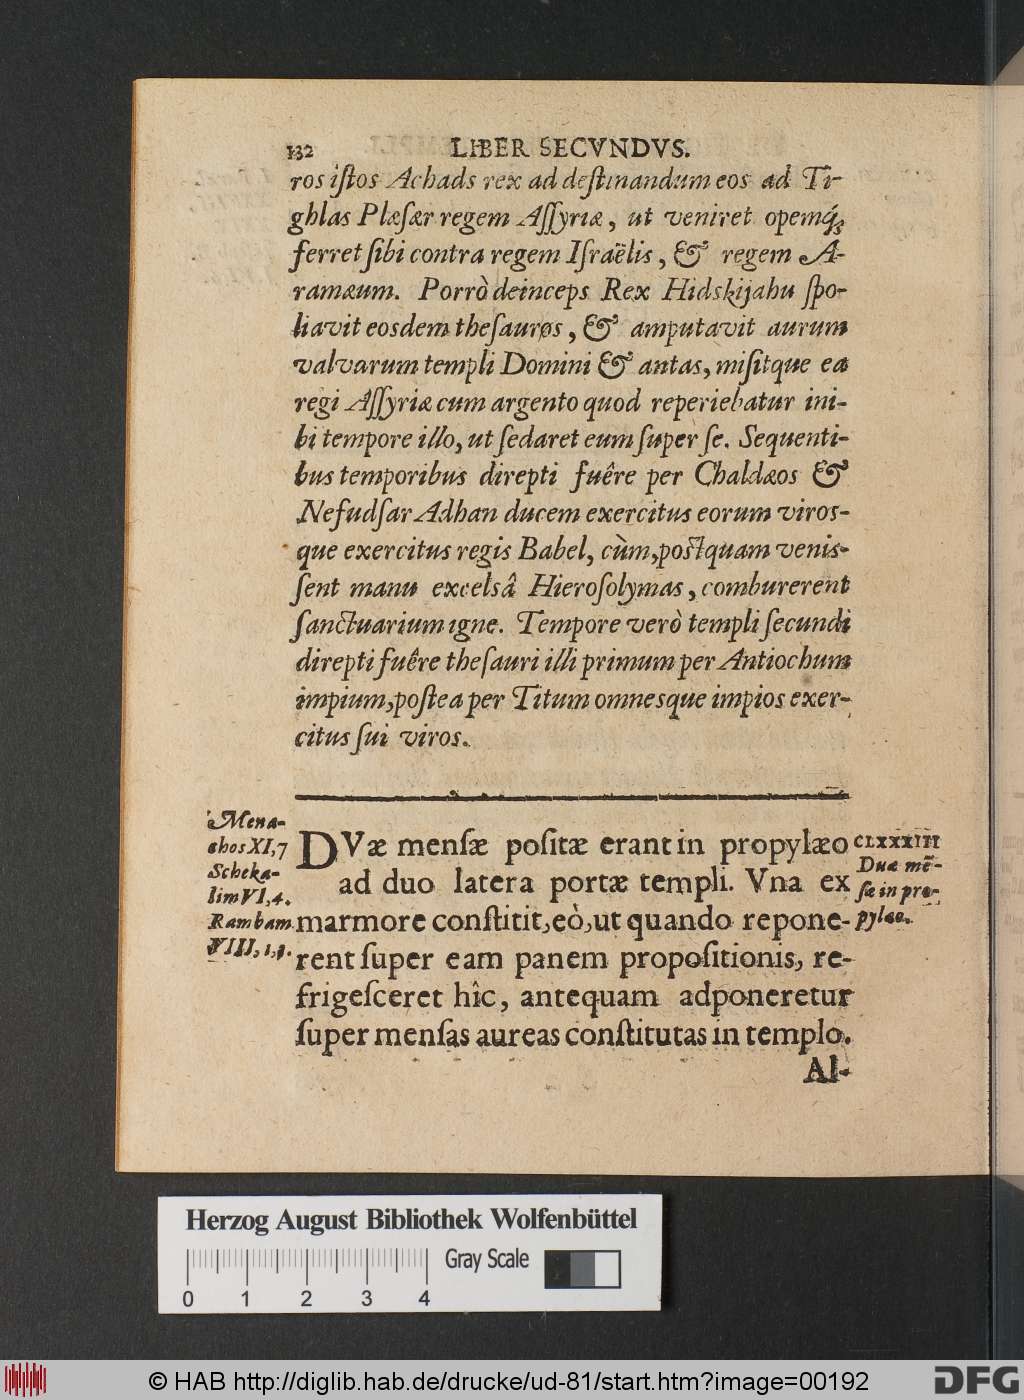 132 LIBER SECVNDVS.
ros iſtos Achads rex ad deſtinandum eos ad Ti-
ghlas Plæſær regem Aſſyriæ, ut veniret opemq́;
ferret ſibi contra regem Iſraëlis, & regem A-
ramæum. Porrò deinceps Rex Hidskijahu ſpo-
liavit eosdem theſauros, & amputavit aurum
valvarum templi Domini & antas, miſitque ea
regi Aſſyriæ cum argento quod reperiebatur ini-
bi tempore illo, ut ſedaret eum ſuper ſe. Sequenti-
bus temporibus direpti fuêre per Chaldæos &
Nefudſar Adhan ducem exercitus eorum viros-
que exercitus regis Babel, cùm, poſtquam venis-
ſent manu excelsâ Hieroſolymas, comburerent
ſanctuarium igne. Tempore verò templi ſecundi
direpti fuêre theſauri illi primum per Antiochum
impium, poſtea per Titum omnesque impios exer-
citus ſui viros.
Mena-
chos XI, 7
Scheka-
lim VI, 4.
Rambam
VIII, 1, 9.
DVæ menſæ poſitæ erant in propylæo
ad duo latera portæ templi. Vna ex
marmore conſtitit, eò, ut quando repone-
rent ſuper eam panem propoſitionis, re-
frigeſceret hîc, antequam adponeretur
ſuper menſas aureas conſtitutas in templo.
Al-
CLXXXIII
Duæ mē-
ſæ in pro-
pylæo.
Herzog August Bibliothek Wolfenbüttel
Gray Scale
0 1 2 3 4
© HAB http://diglib.hab.de/drucke/ud-81/start.htm?image=00192
DFG